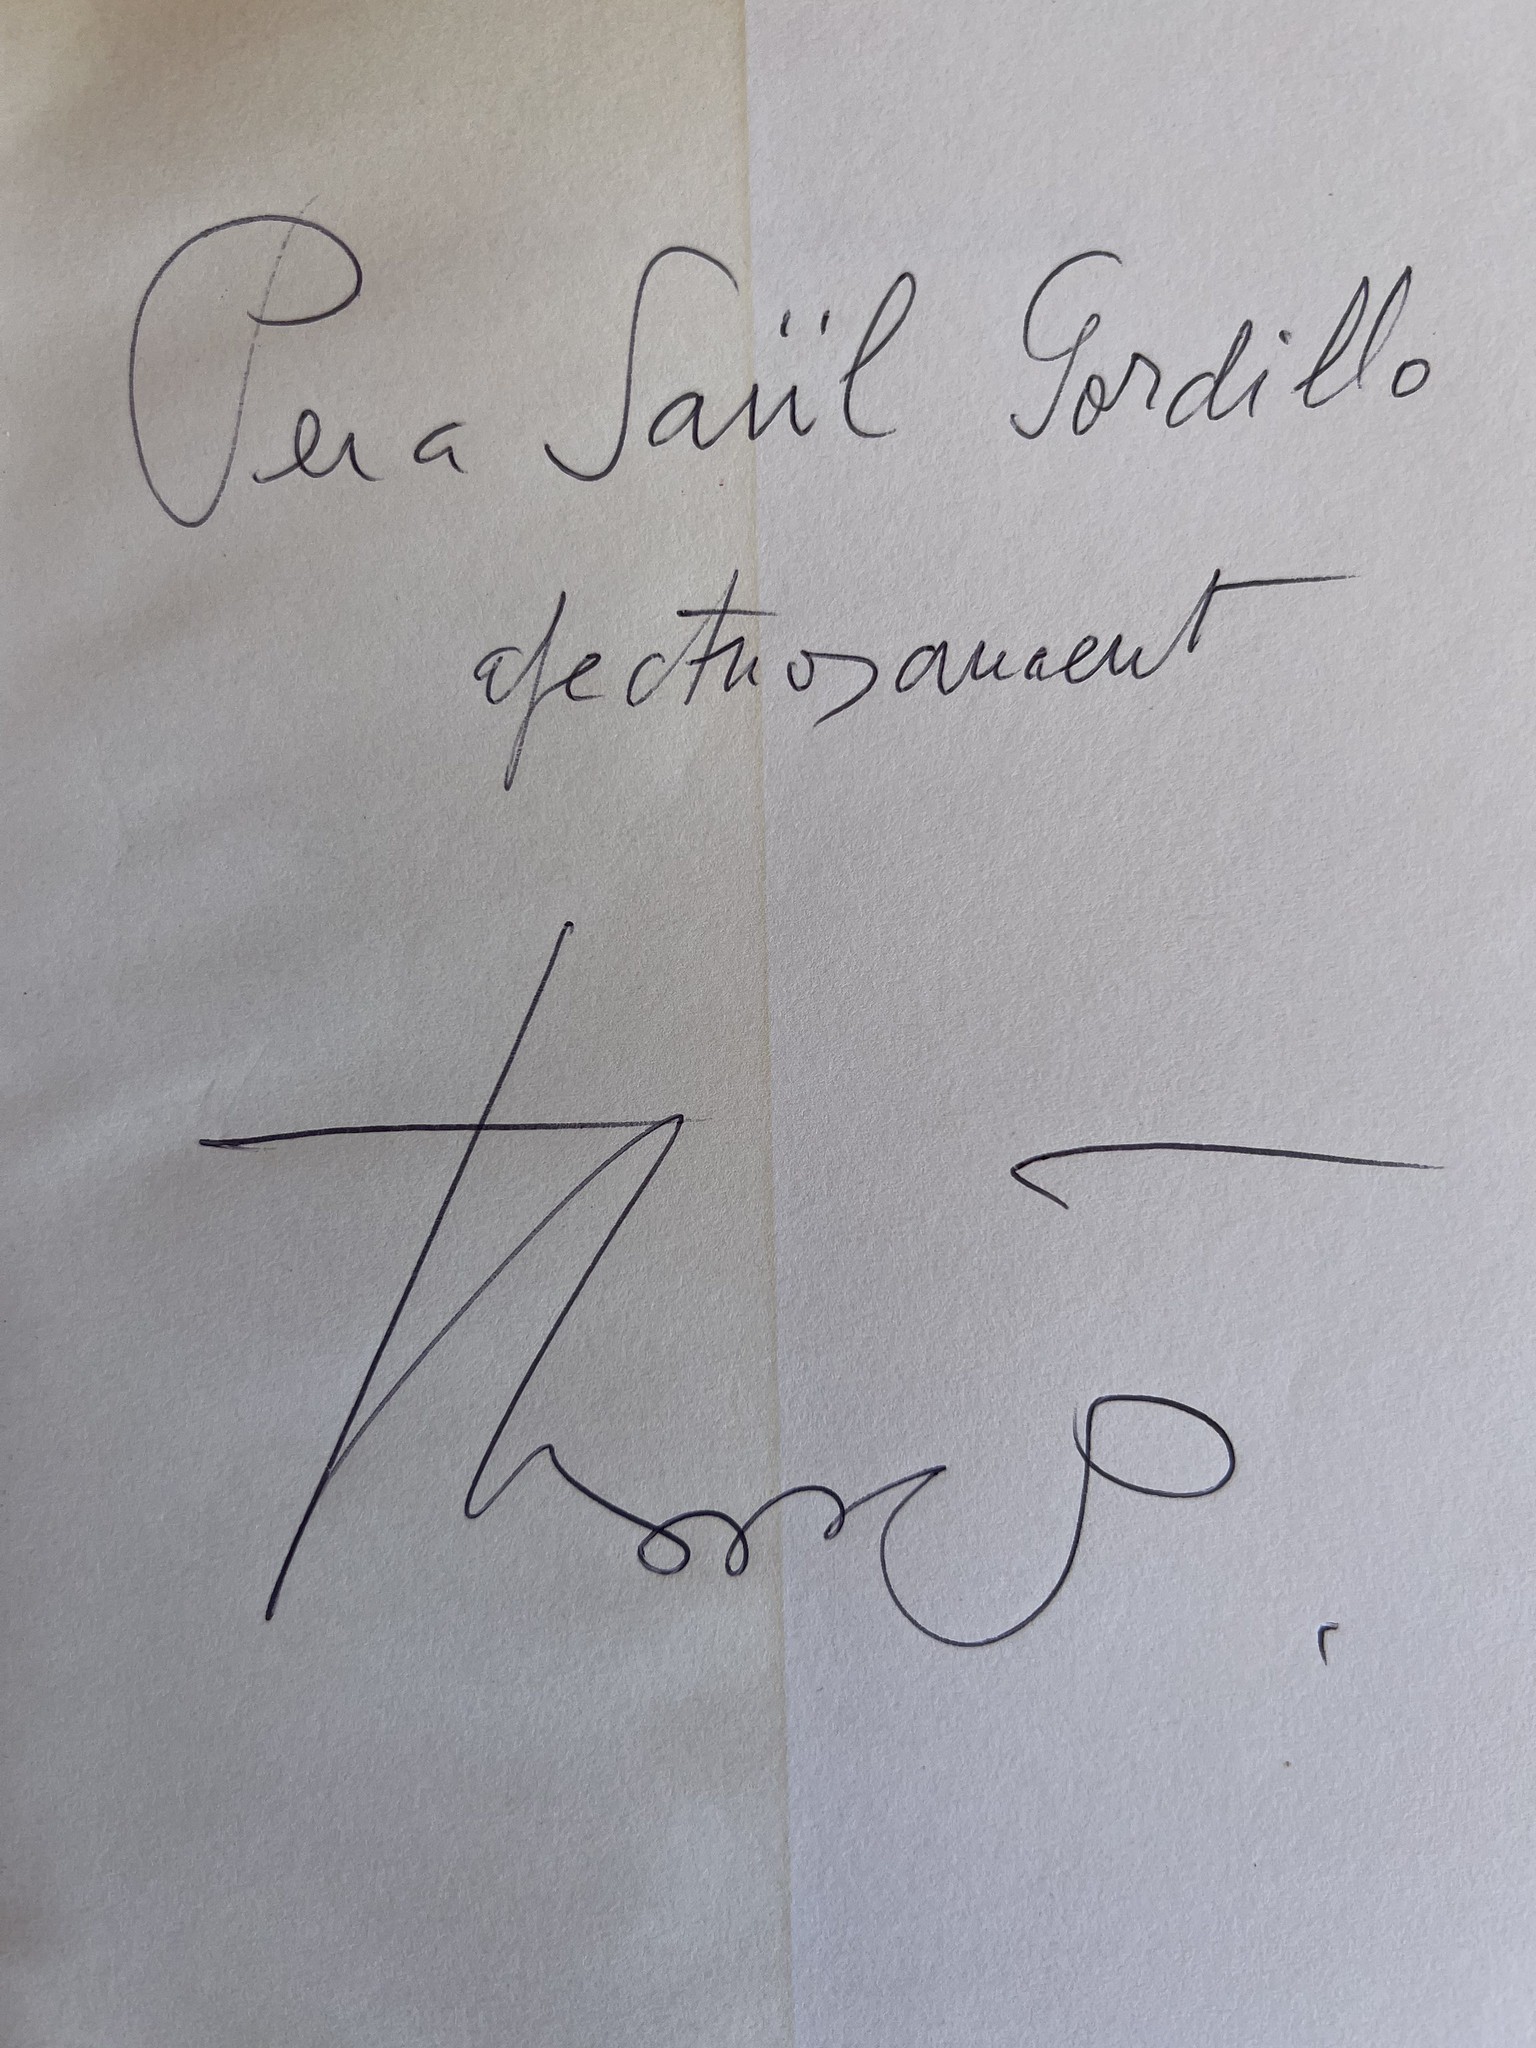 Per a Saül Gordillo
afectuosament